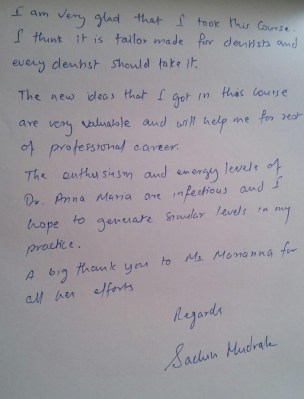 I am very glad that I took this course.
I think it is tailor made for dentists and
every dentist should take it.
The new ideas that I got in this course
are very valuable and will help me for rest
of professional career.
The enthusism and energy levels of
Dr. Anna Maria are infectious and I
hope to generate similar levels in my
practice.
A big thank you to Ms. Marianna for
all her efforts
Regards
Sachin Mudrale